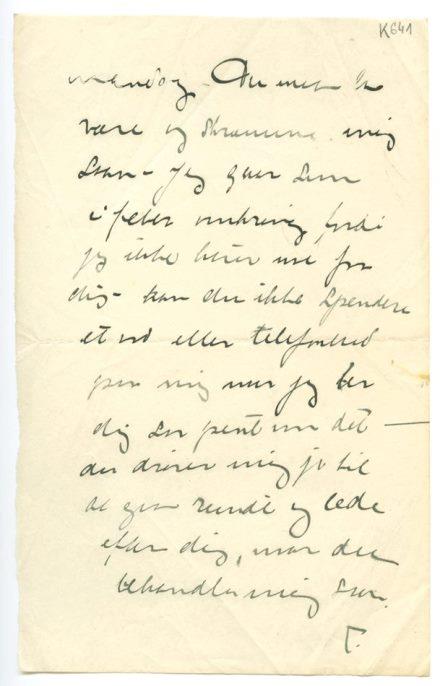 K641
mandag – Du må ikke
være og skræmme mig
saan – jeg gaar som
i feber omkring, fordi
jeg ikke hører noe fra
dig – kan du ikke spendere
et ord eller telefonbud
paa mig naar jeg ber
dig saa pent om det –
du driver mig jo til
at gaa rundt og lede
efter dig, naar du
behandler mig saan.
T.